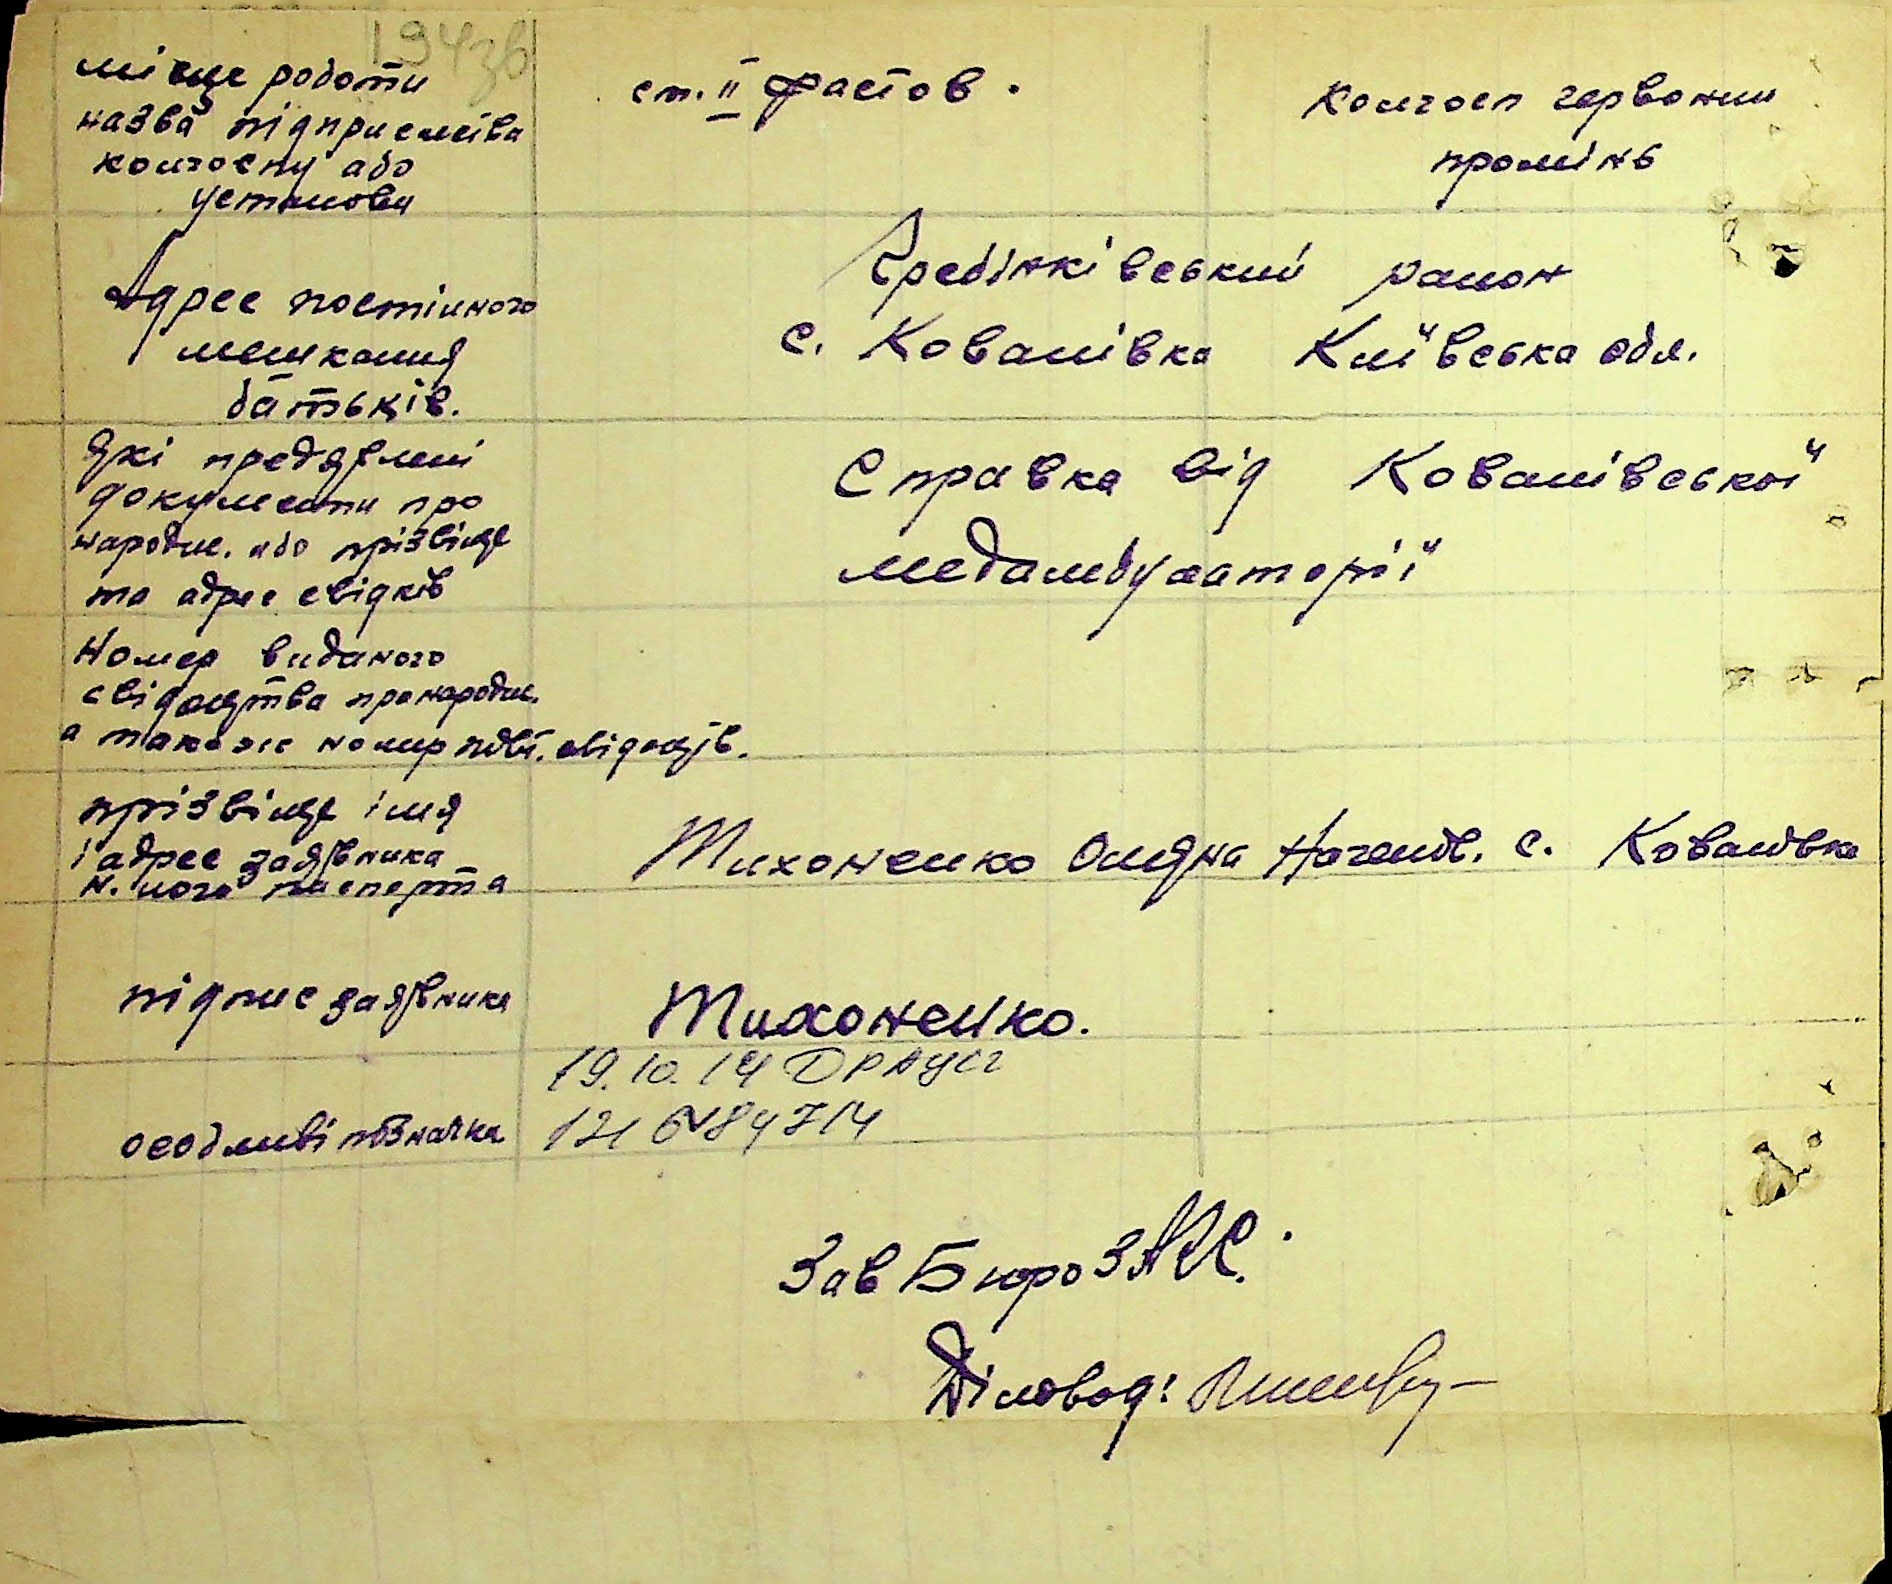 місце роботи
назва підприємства
колгоспу або
установи
ст. II Фастов.
Колгосп червоний
промінь
Адрес постійного
мешкання
батьків.
Гребінківський район
с. Ковалівка Київська обл.
Які предявлені
документи про
народж. або прізвіще
та адрес свідків
Справка від Ковалівської
медамбулаторії
Номер виданого
свідоцтва про народж.
а також номир повт. свідоців.
прізвіще імя
і адрес заявника
н. його паспорта
Тихоненко Оляна с. Ковалівка
підпис заявника
Тихоненко.
19.10.14
особливі позначки
Зав Бюро ЗАГС.
Діловод: